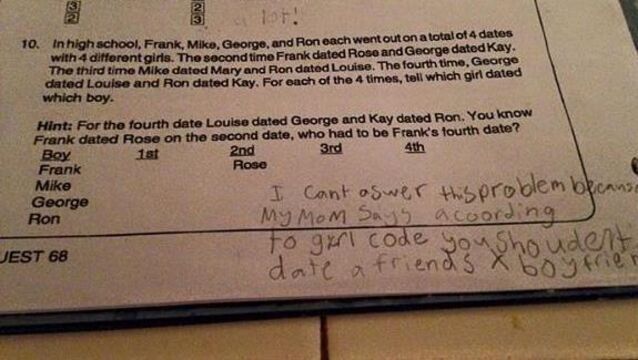 3 2
2 3
a lot!
10. In high school, Frank, Mike, George, and Ron each went out on a total of 4 dates
with 4 different girls. The second time Frank dated Rose and George dated Kay.
The third time Mike dated Mary and Ron dated Louise. The fourth time, George
dated Louise and Ron dated Kay. For each of the 4 times, tell which girl dated
which boy.
Hint: For the fourth date Louise dated George and Kay dated Ron. You know
Frank dated Rose on the second date, who had to be Frank's fourth date?
Boy 1st 2nd 3rd 4th
Frank Rose
Mike
George
Ron
I cant aswer this problem becaus
My Mom Says acoording
to girl code you shoudent
date a friends X boyfrien
UEST 68